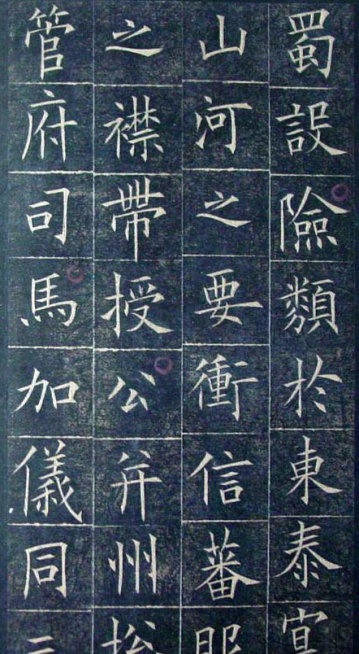 蜀設險類於東秦
山河之要衝信蕃
之襟帶授公并州
管府司馬加儀同